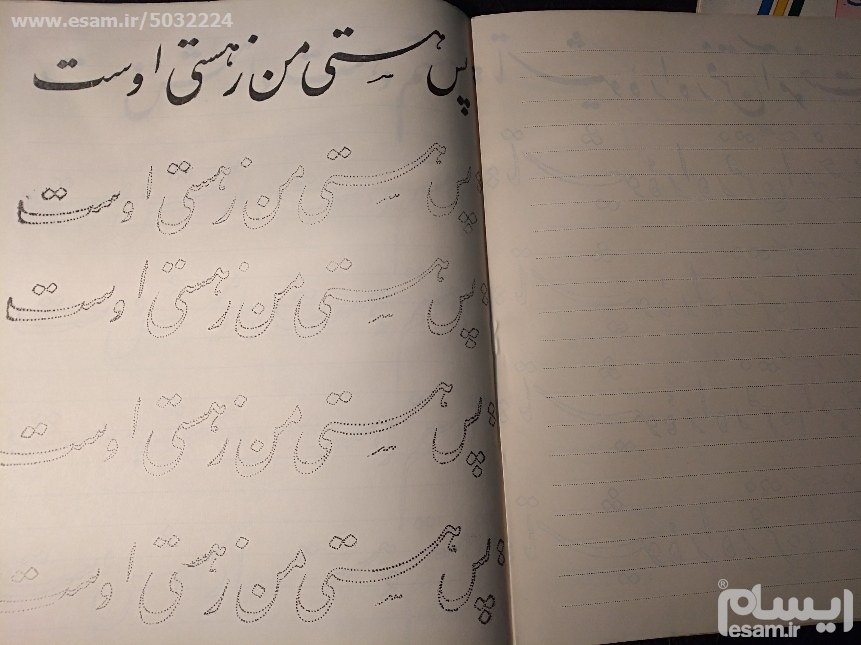 www.esam.ir/5032224
پس هستی من ز هستی اوست
پس هستی من ز هستی اوست
پس هستی من ز هستی اوست
پس هستی من ز هستی اوست
پس هستی من ز هستی اوست
ایسام®
esam.ir